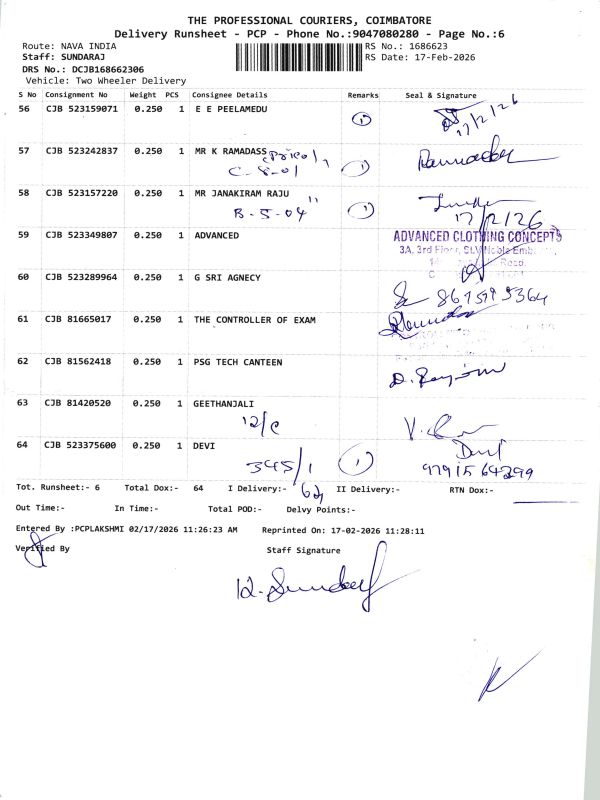 THE PROFESSIONAL COURIERS, COIMBATORE
Delivery Runsheet - PCP - Phone No.:9047080280 - Page No.:6
Route: NAVA INDIA RS No.: 1686623
Staff: SUNDARAJ RS Date: 17-Feb-2026
DRS No.: DCJB168662306
Vehicle: Two Wheeler Delivery
S No Consignment No Weight PCS Consignee Details Remarks Seal & Signature
56 CJB 523159071 0.250 1 E E PEELAMEDU 1 17/2/26
57 CJB 523242837 0.250 1 MR K RAMADASS
C-8-01 1
58 CJB 523157220 0.250 1 MR JANAKIRAM RAJU
B-5-04" 1 17/2/26
59 CJB 523349807 0.250 1 ADVANCED ADVANCED CLOTHING CONCEPTS
3A, 3rd Floor, SLV Noble
Road.
60 CJB 523289964 0.250 1 G SRI AGNECY
61 CJB 81665017 0.250 1 THE CONTROLLER OF EXAM
62 CJB 81562418 0.250 1 PSG TECH CANTEEN
63 CJB 81420520 0.250 1 GEETHANJALI
12/C
64 CJB 523375600 0.250 1 DEVI Devi
345/1 1 9791564299
Tot. Runsheet:- 6 Total Dox:- 64 I Delivery:- 62 II Delivery:- RTN Dox:-
Out Time:- In Time:- Total POD:- Delvy Points:-
Entered By :PCPLAKSHMI 02/17/2026 11:26:23 AM Reprinted On: 17-02-2026 11:28:11
Verified By Staff Signature